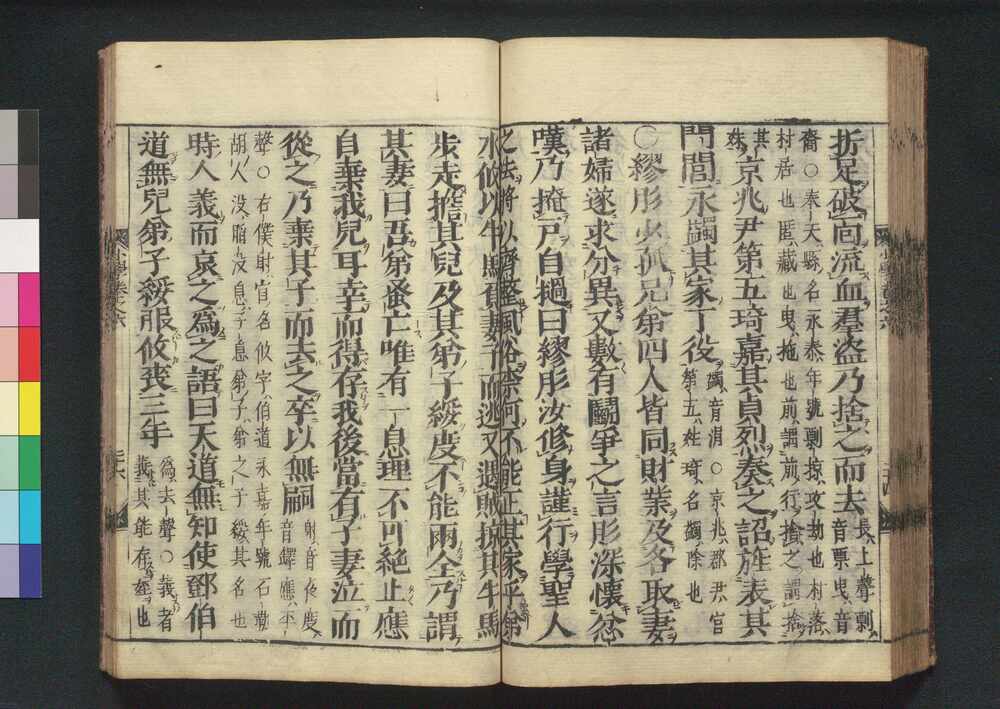 折足破面流血羣盜乃捨之而去
長上聲剽
音票曳音
裔○奉天縣名永泰年號剽掠攻劫也村落
村居也匿藏也曳拖也前謂前行捨之謂捨
其
姝
京兆尹第五琦嘉其貞烈奏之詔旌表其
門閭永蠲其家丁役
蠲音涓○京兆郡尹官
第五姓琦名蠲除也
○繆肜少孤兄弟四人皆同財業及各取妻
諸婦遂求分異又數有鬭爭之言肜深懷忿
嘆乃掩戸自撾曰繆肜汝修身謹行學聖人
之法將以齊整風俗柰何不能正其家乎弟
水攸以牛馬負妻子而逃又遇賊掠其牛馬
步走擔其兒及其弟子綏度不能兩全乃謂
其妻曰吾弟蚤亡唯有一息理不可絶止應
自棄我兒耳幸而得存我後當有子妻泣而
從之乃棄其子而去之卒以無嗣
射音夜度
音鐸應平
聲○右僕射官名攸字伯道永嘉年號石勒
胡人没陷没息子息弟子弟之子綏其名也
時人義而哀之爲之語曰天道無知使鄧伯
道無兒弟子綏服攸喪三年
爲去聲○義者
義其能存姪也
小學卷之六